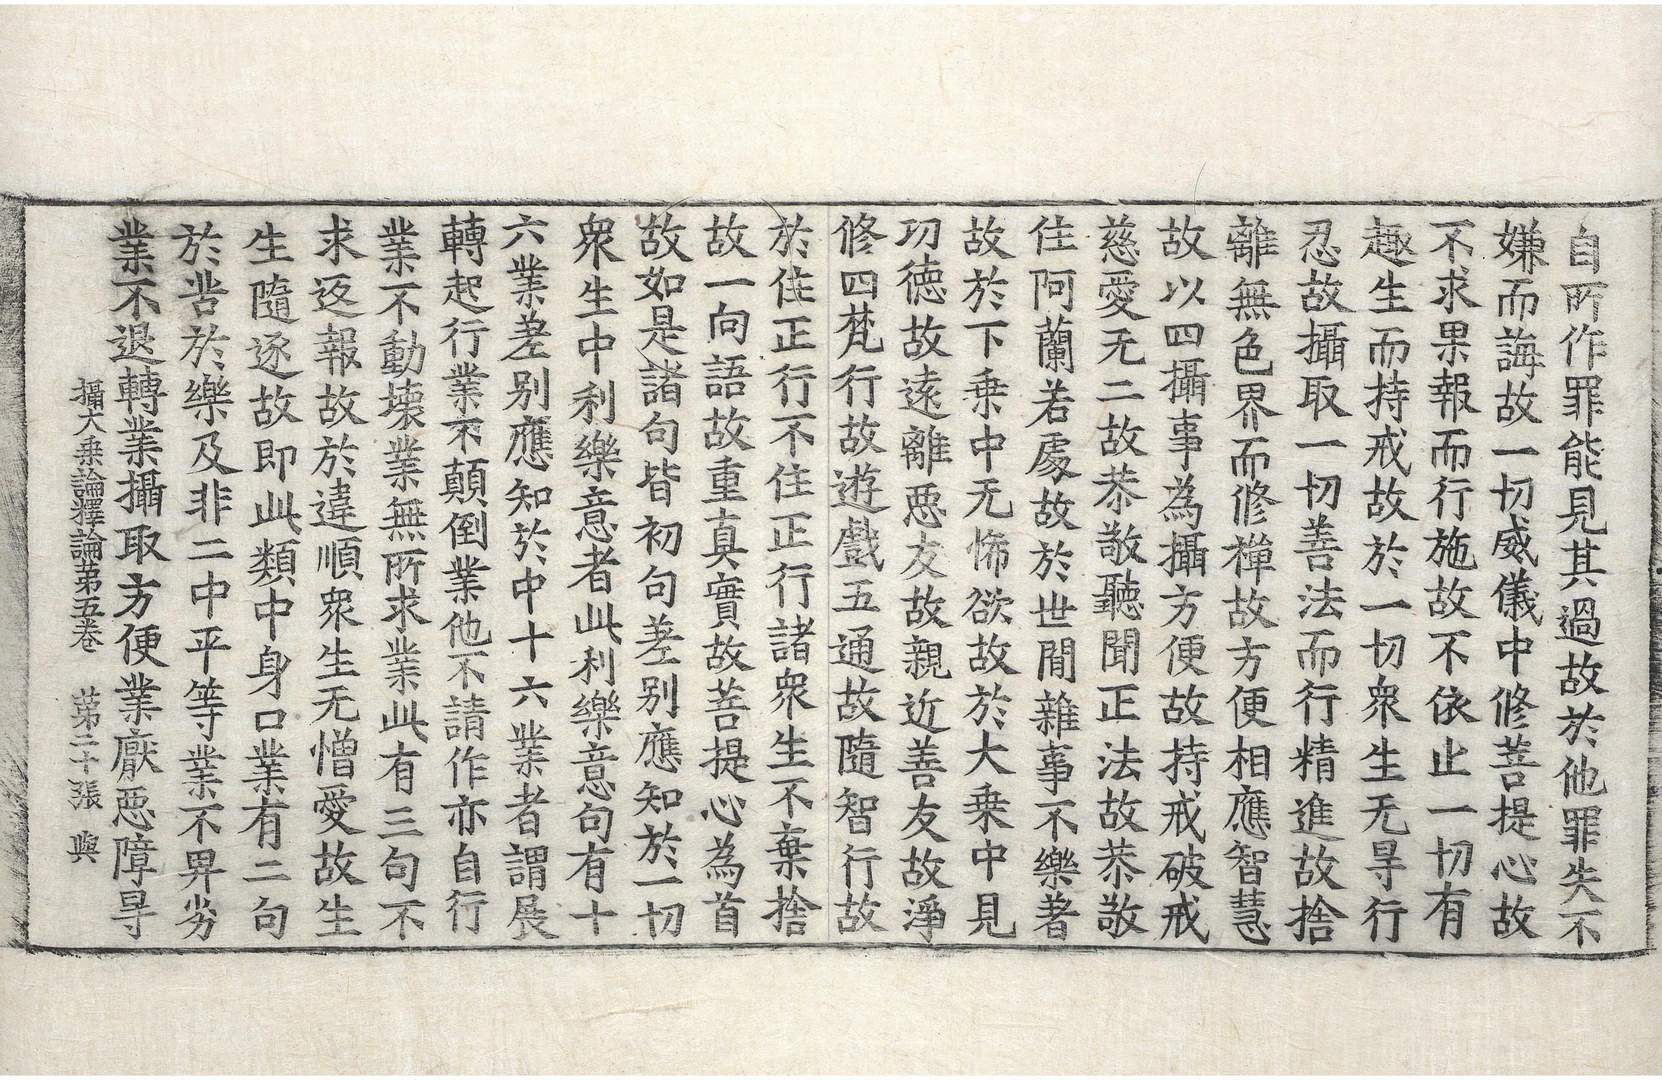 自所作罪能見其過故於他罪失不
嫌而誨故一切威儀中修菩提心故
不求果報而行施故不依止一切有
趣生而持戒故於一切衆生无㝵行
忍故攝取一切善法而行精進故捨
離無色界而修禪故方便相應智慧
故以四攝事為攝方便故持戒破戒
慈愛无二故恭敬聽聞正法故恭敬
住阿蘭若處故於世閒雜事不樂著
故於下乗中无悕欲故於大乗中見
功德故遠離惡友故親近善友故淨
修四梵行故遊戲五通故隨智行故
於住正行不住正行諸衆生不棄捨
故一向語故重真實故菩提心為首
故如是諸句皆初句差别應知於一切
衆生中利樂意者此利樂意句有十
六業差别應知於中十六業者謂展
轉起行業不顛倒業他不請作亦自行
業不動壞業無所求業此有三句不
求返報故於違順衆生无憎愛故生
生隨逐故即此類中身口業有二句
於苦於樂及非二中平等業不㫒劣
業不退轉業攝取方便業厭惡障㝵
攝大乗論釋論第五卷 第二十張 與